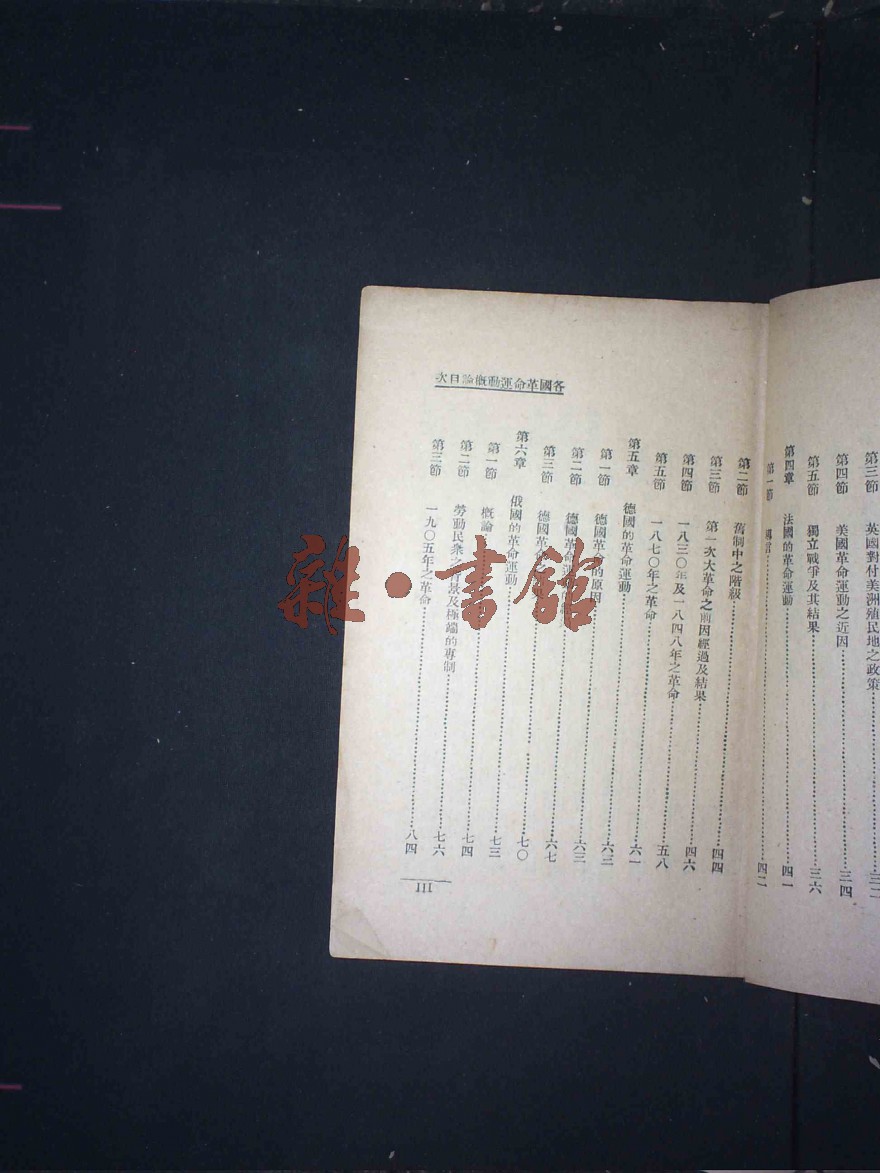 各國革命運動概論目次
第三節 英國對付美洲殖民地之政策
第四節 美國革命運動之近因 三四
第五節 獨立戰爭及其結果 三六
第四章 法國的革命運動 四一
第一節 四二
第二節 舊制中之階級 四四
第三節 第一次大革命之前因經過及結果
第四節 一八三〇年及一八四八年之革命 四六
第五節 一八七〇年之革命 五八
第五章 德國的革命運動 六一
第一節 德國革命的原因
第二節 德國革命運 六三
第三節 德國革命 六七
第六章 俄國的革命運動 七〇
第一節 概論 七三
第二節 勞動民衆之背景及極端的專制 七四
第三節 一九〇五年之革命 七六
八四
III
雜·書館